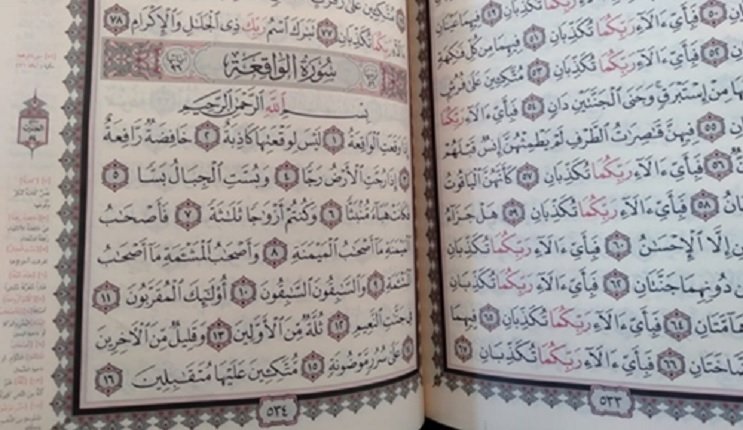 فَبِأَيِّ ءَالَآءِ رَبِّكُمَا تُكَذِّبَانِ ٤٩ فِيهِمَا عَيْنَانِ
٥٠ فَبِأَيِّ ءَالَآءِ رَبِّكُمَا تُكَذِّبَانِ ٥١ فِيهِمَا مِن كُلِّ فَٰكِهَةٍ
٥٢ فَبِأَيِّ ءَالَآءِ رَبِّكُمَا تُكَذِّبَانِ ٥٣ مُتَّكِـِٔينَ عَلَىٰ فُرُشٍ
مِنْ إِسْتَبْرَقٍ وَجَنَى ٱلْجَنَّتَيْنِ دَانٍ ٥٤ فَبِأَيِّ ءَالَآءِ رَبِّكُمَا
٥٥ فِيهِنَّ قَٰصِرَٰتُ ٱلطَّرْفِ لَمْ يَطْمِثْهُنَّ إِنسٌ قَبْلَهُمْ
٥٦ فَبِأَيِّ ءَالَآءِ رَبِّكُمَا تُكَذِّبَانِ ٥٧ كَأَنَّهُنَّ ٱلْيَاقُوتُ
٥٨ فَبِأَيِّ ءَالَآءِ رَبِّكُمَا تُكَذِّبَانِ ٥٩ هَلْ جَزَآءُ
إِلَّا ٱلْإِحْسَٰنُ ٦٠ فَبِأَيِّ ءَالَآءِ رَبِّكُمَا تُكَذِّبَانِ
دُونِهِمَا جَنَّتَانِ ٦٢ فَبِأَيِّ ءَالَآءِ رَبِّكُمَا تُكَذِّبَانِ
٦٤ فَبِأَيِّ ءَالَآءِ رَبِّكُمَا تُكَذِّبَانِ ٦٥ فِيهِمَا
٦٦ فَبِأَيِّ ءَالَآءِ رَبِّكُمَا تُكَذِّبَانِ ٦٧
٥٣٣
مُتَّكِـِٔينَ عَلَىٰ رَفْرَفٍ
رَبِّكُمَا تُكَذِّبَانِ ٧٧ تَبَٰرَكَ ٱسْمُ رَبِّكَ ذِى ٱلْجَلَٰلِ وَٱلْإِكْرَامِ ٧٨
سُورَةُ الوَاقِعَةِ
بِسْمِ ٱللَّهِ ٱلرَّحْمَٰنِ ٱلرَّحِيمِ
إِذَا وَقَعَتِ ٱلْوَاقِعَةُ ١ لَيْسَ لِوَقْعَتِهَا كَاذِبَةٌ ٢ خَافِضَةٌ رَّافِعَةٌ
٣ إِذَا رُجَّتِ ٱلْأَرْضُ رَجًّا ٤ وَبُسَّتِ ٱلْجِبَالُ بَسًّا ٥
فَكَانَتْ هَبَآءً مُّنۢبَثًّا ٦ وَكُنتُمْ أَزْوَٰجًا ثَلَٰثَةً ٧ فَأَصْحَٰبُ
ٱلْمَيْمَنَةِ مَآ أَصْحَٰبُ ٱلْمَيْمَنَةِ ٨ وَأَصْحَٰبُ ٱلْمَشْـَٔمَةِ مَآ أَصْحَٰبُ
ٱلْمَشْـَٔمَةِ ٩ وَٱلسَّٰبِقُونَ ٱلسَّٰبِقُونَ ١٠ أُو۟لَٰٓئِكَ ٱلْمُقَرَّبُونَ ١١
فِى جَنَّٰتِ ٱلنَّعِيمِ ١٢ ثُلَّةٌ مِّنَ ٱلْأَوَّلِينَ ١٣ وَقَلِيلٌ مِّنَ ٱلْـَٔاخِرِينَ
١٤ عَلَىٰ سُرُرٍ مَّوْضُونَةٍ ١٥ مُّتَّكِـِٔينَ عَلَيْهَا مُتَقَٰبِلِينَ ١٦
٥٣٤